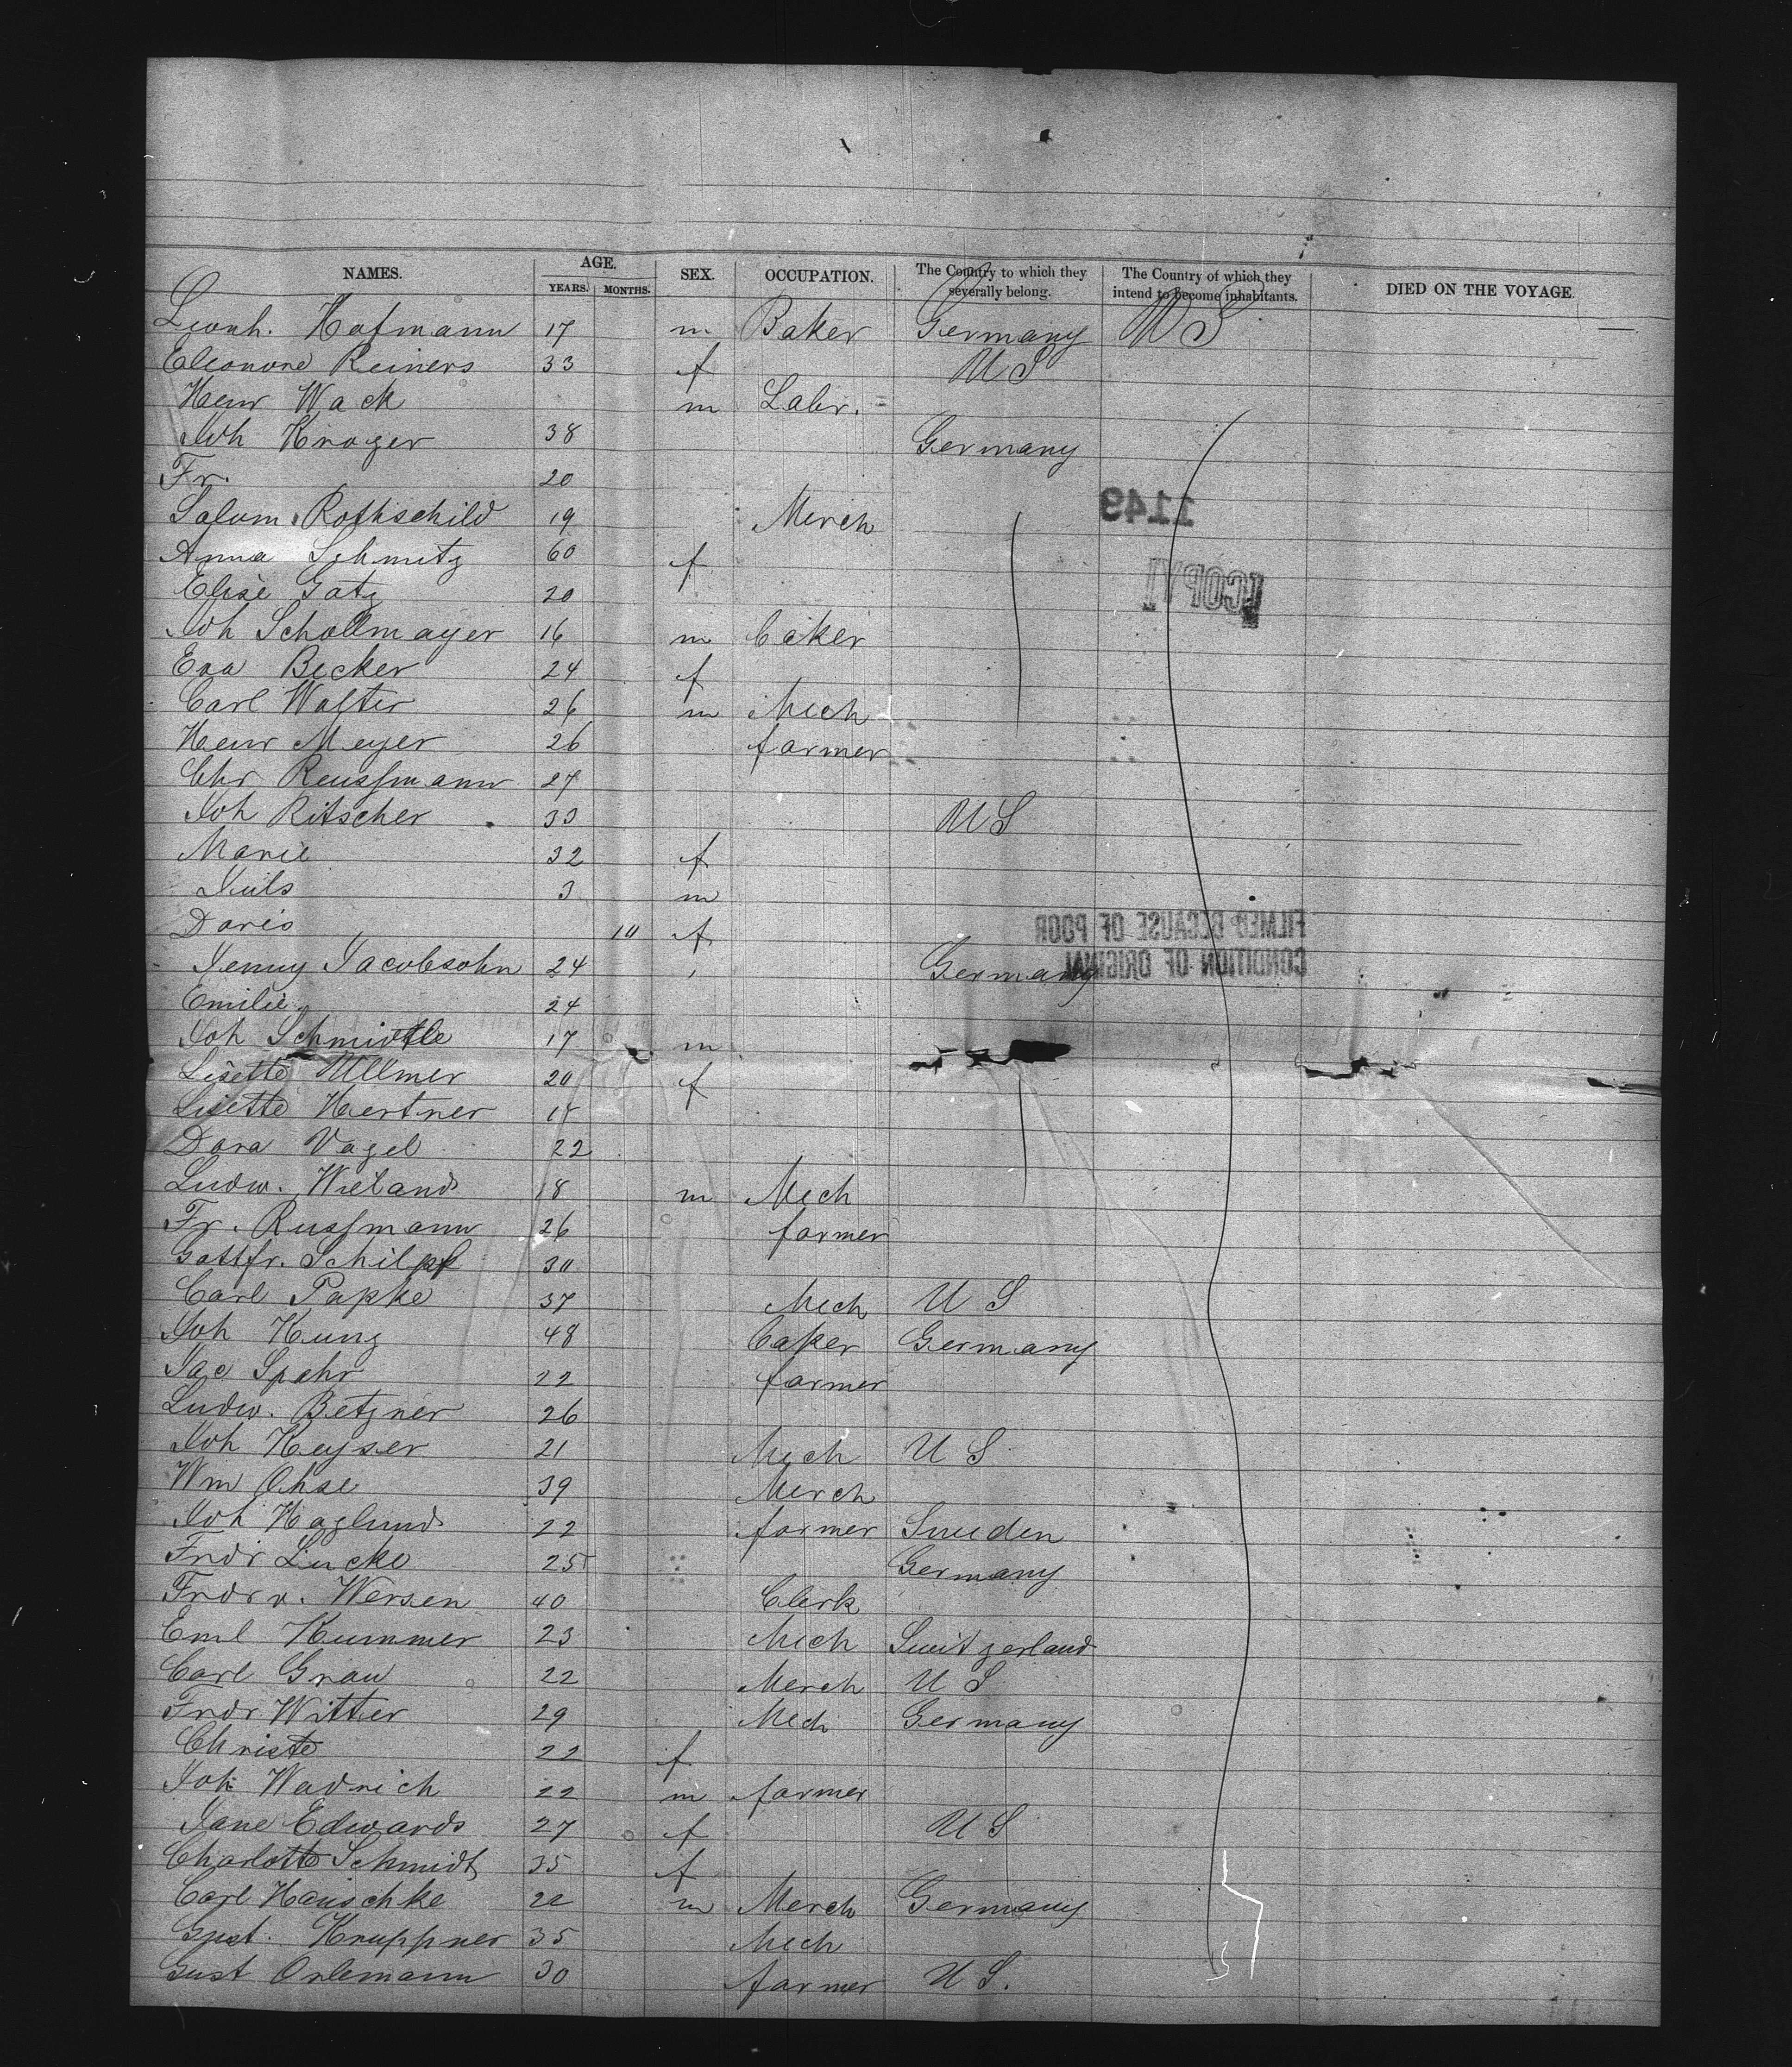 NAMES. AGE. SEX. OCCUPATION. The Country to which they severally belong. The Country of which they intend to become inhabitants. DIED ON THE VOYAGE
YEARS. MONTHS.
Leonh. Hofmann 17 m Baker Germany U S
Eleonore Reiners 33 f U S
Henr Wack m Labr.
Joh Kroger 38 Germany
Fr. 20
Salom. Rothschild 19 Merch
1149
Anna Schmitz 60 f
Elise Gotz 20
COPY
Joh Schollmayer 16 m baker
Eva Becker 24 f
Carl Walter 26 m Mech
Henr Meyer 26 farmer
Chr Reussmann 27
Joh Ritscher 33 U S
Marie 32 f
Juls 3 m
Doris 10 f
FILMED BECAUSE OF POOR
CONDITION OF ORIGINAL
Jenny Jacobsohn 24 Germany
Emilie 24
Joh Schmidtle 17 m
Lisette Ullmer 20 f
Lisette Hertner
Dora Vogel 22
Ludw. Wieland 18 m Mech
Fr. Russmann 26 farmer
Gottfr. Schilpf 30
Carl Papke 37 Mech U S
Joh Kunz 48 baker Germany
Jac Spahr 22 farmer
Ludw. Betzner 26
Joh Keyser 21 Mech U S
Wm Ohse 39 Merch
Joh Haglund 22 farmer Sweden
Fndr Lucke 25 Germany
Fndr v. Wersen 40 Clerk
Eml Kummer 23 Mech Switzerland
Carl Grau 22 Merch U S
Fndr Witter 29 Mech Germany
Christe 22 f
Joh Wadrich 22 m farmer
Jane Edwards 27 f U S
Charlotte Schmidt 35 f
Carl Hauschke m Merch Germany
Gust. Kruppner 35 Mech
Gust Orlemann 30 farmer U S.